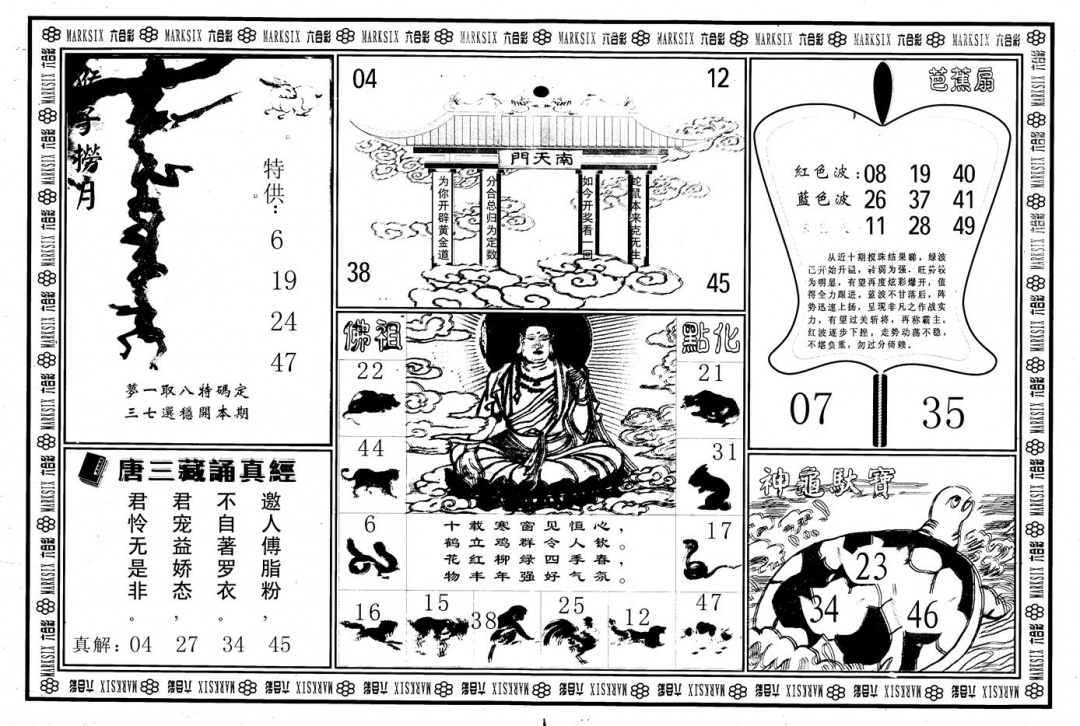 MARKSIX 六合彩 MARKSIX 六合彩 MARKSIX 六合彩 MARKSIX 六合彩 MARKSIX 六合彩 MARKSIX 六合彩 MARKSIX 六合彩 MARKSIX 六合彩 MARKSIX 六合彩 MARKSIX 六合彩
猴子撈月
特供：
6
19
24
47
夢一取八特碼定
三七選穩開本期
唐三藏誦真經
邀人傅脂粉，
不自著罗衣。
君宠益娇态，
君怜无是非。
真解：04 27 34 45
04
12
南天門
为你开辟黄金道
分合总归为定数
如今开奖看一回
蛇鼠本来克无生
38
45
佛祖
點化
22
21
44
31
6
17
十载寒窗见恒心，
鹤立鸡群令人钦。
花红柳绿四季春，
物丰年强好气氛。
16
15
38
25
12
47
芭蕉扇
紅色波：08 19 40
藍色波 26 37 41
11 28 49
从近十期搅珠结果睇，绿波
已开始升温，转弱为强，旺势较
为明显，有望再度炫彩爆开，值
得全力跟进。蓝波不甘落后，阵
势迅速上扬，呈现非凡之作战实
力，有望过关斩将，再称霸主。
红波逐步下挫，走势动荡不稳，
不堪负重，勿过分倚赖。
07
35
神龜馱寶
23
34
46